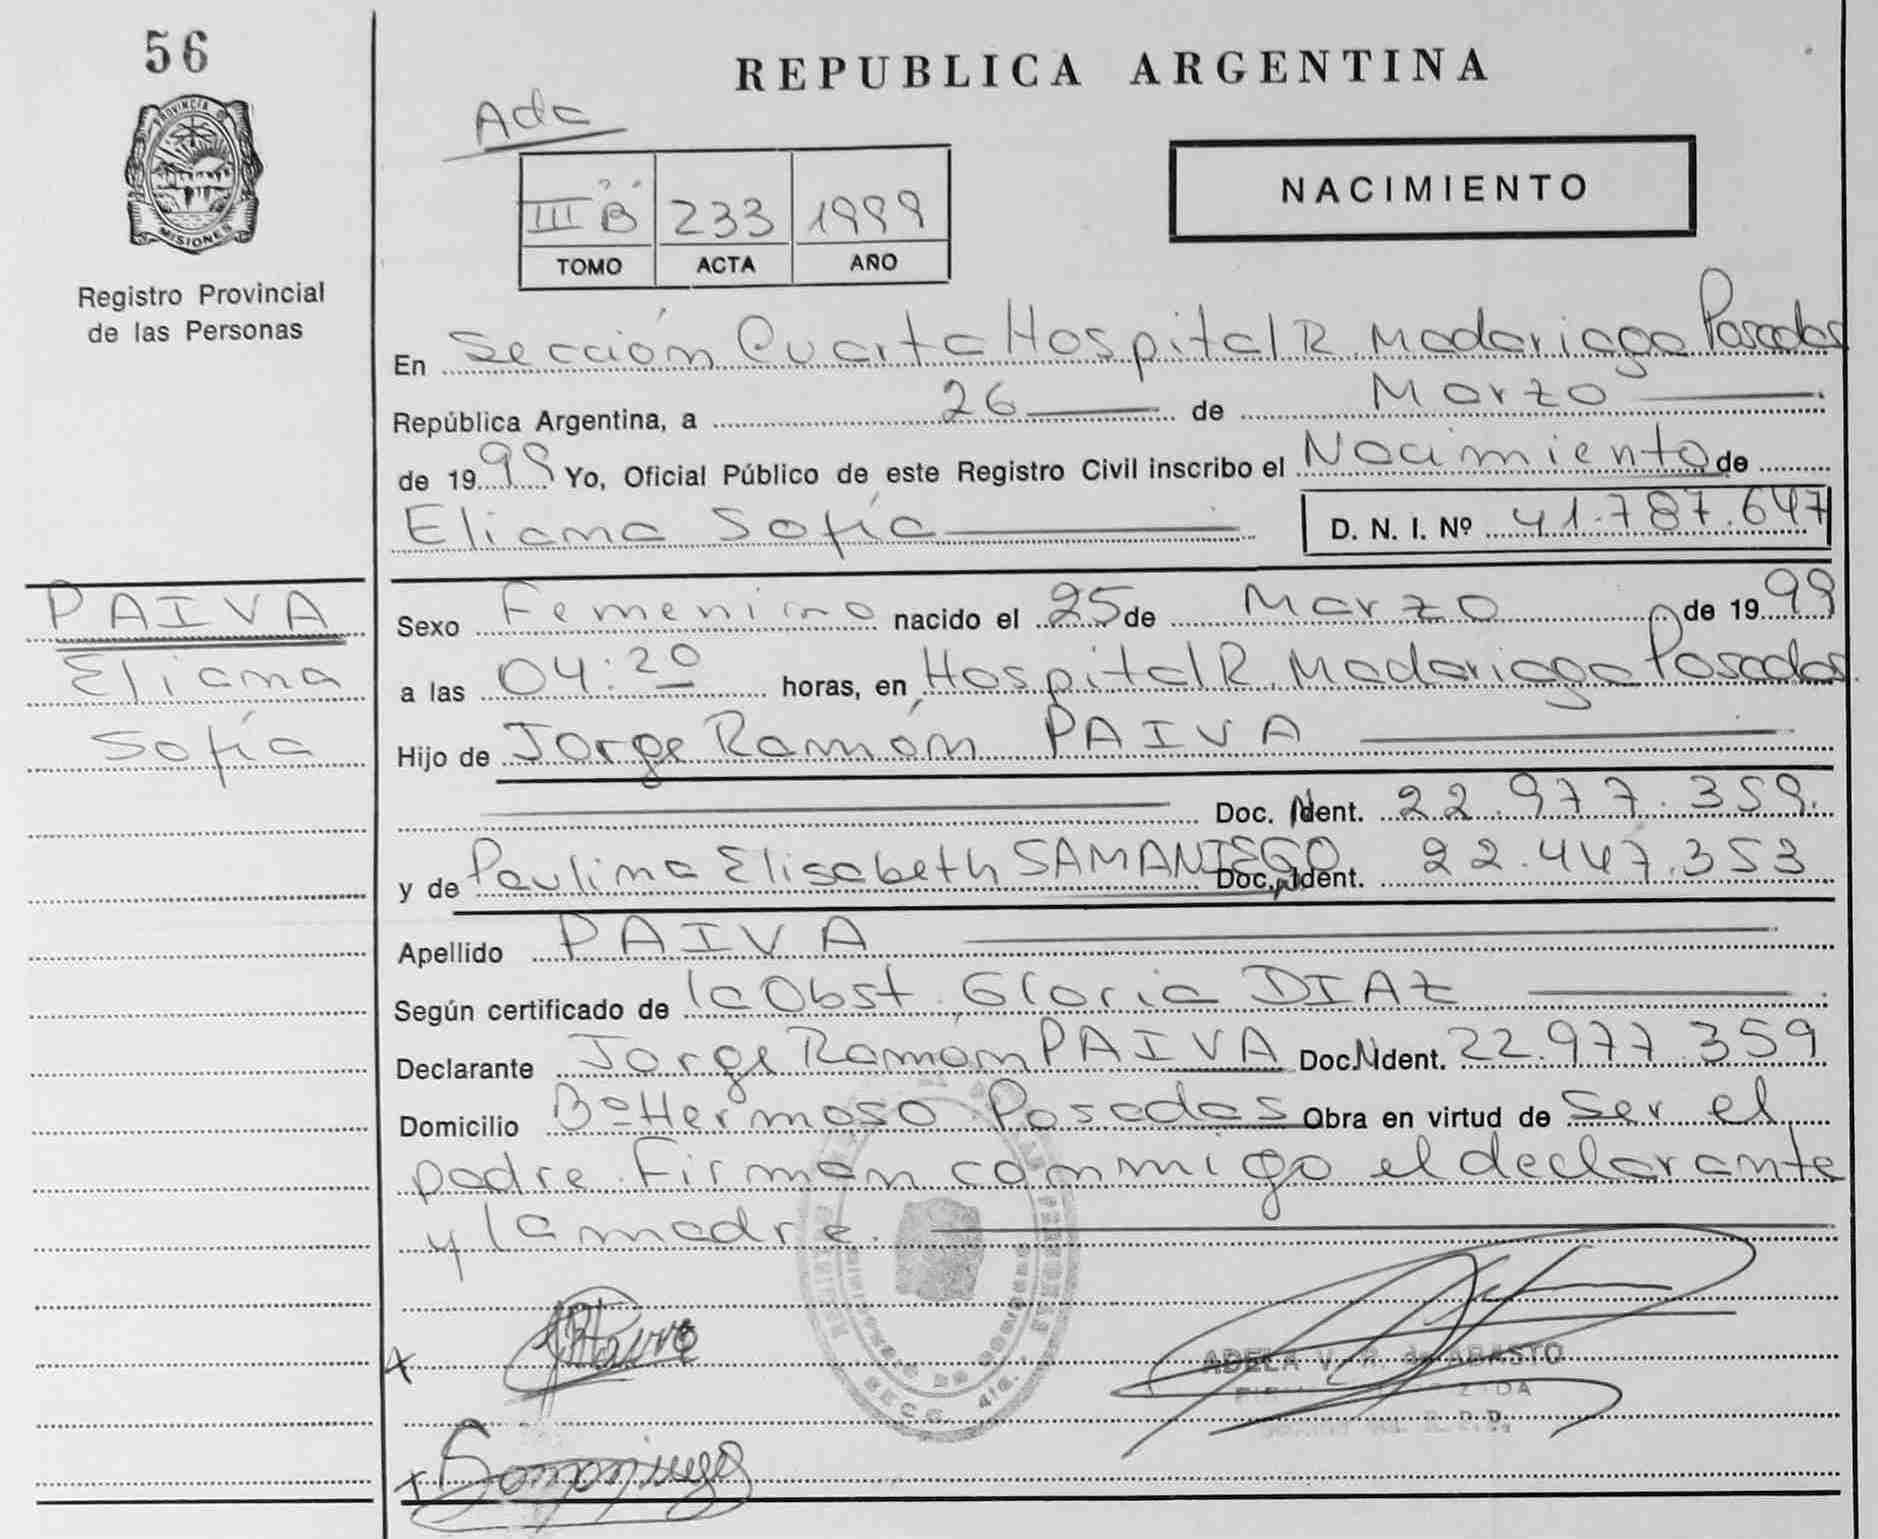 56
REPUBLICA ARGENTINA
PROVINCIA DE
MISIONES
Registro Provincial
de las Personas
Ada
III B 233 1999
TOMO ACTA AÑO
NACIMIENTO
En Sección Cuarta Hospital R. Madariaga Posadas
República Argentina, a 26 de Marzo
de 1999 Yo, Oficial Público de este Registro Civil inscribo el Nacimiento de
Eliana Sofía D. N. I. Nº 41.787.647
PAIVA
Eliana
Sofía
Sexo Femenino nacido el 25 de Marzo de 1999
a las 04:20 horas, en Hospital R. Madariaga Posadas.
Hijo de Jorge Ramón PAIVA
Doc. Ident. 22.977.359.
y de Paulina Elisabeth SAMANIEGO Doc. Ident. 22.447.353
Apellido PAIVA
Según certificado de la Obst. Gloria DIAZ
Declarante Jorge Ramón PAIVA Doc. Ident. 22.977.359
Domicilio Bº Hermoso Posadas Obra en virtud de ser el
padre. Firman conmigo el declarante
y la madre.
ADELA V. R. de ABASTO
SECC. 4ta.